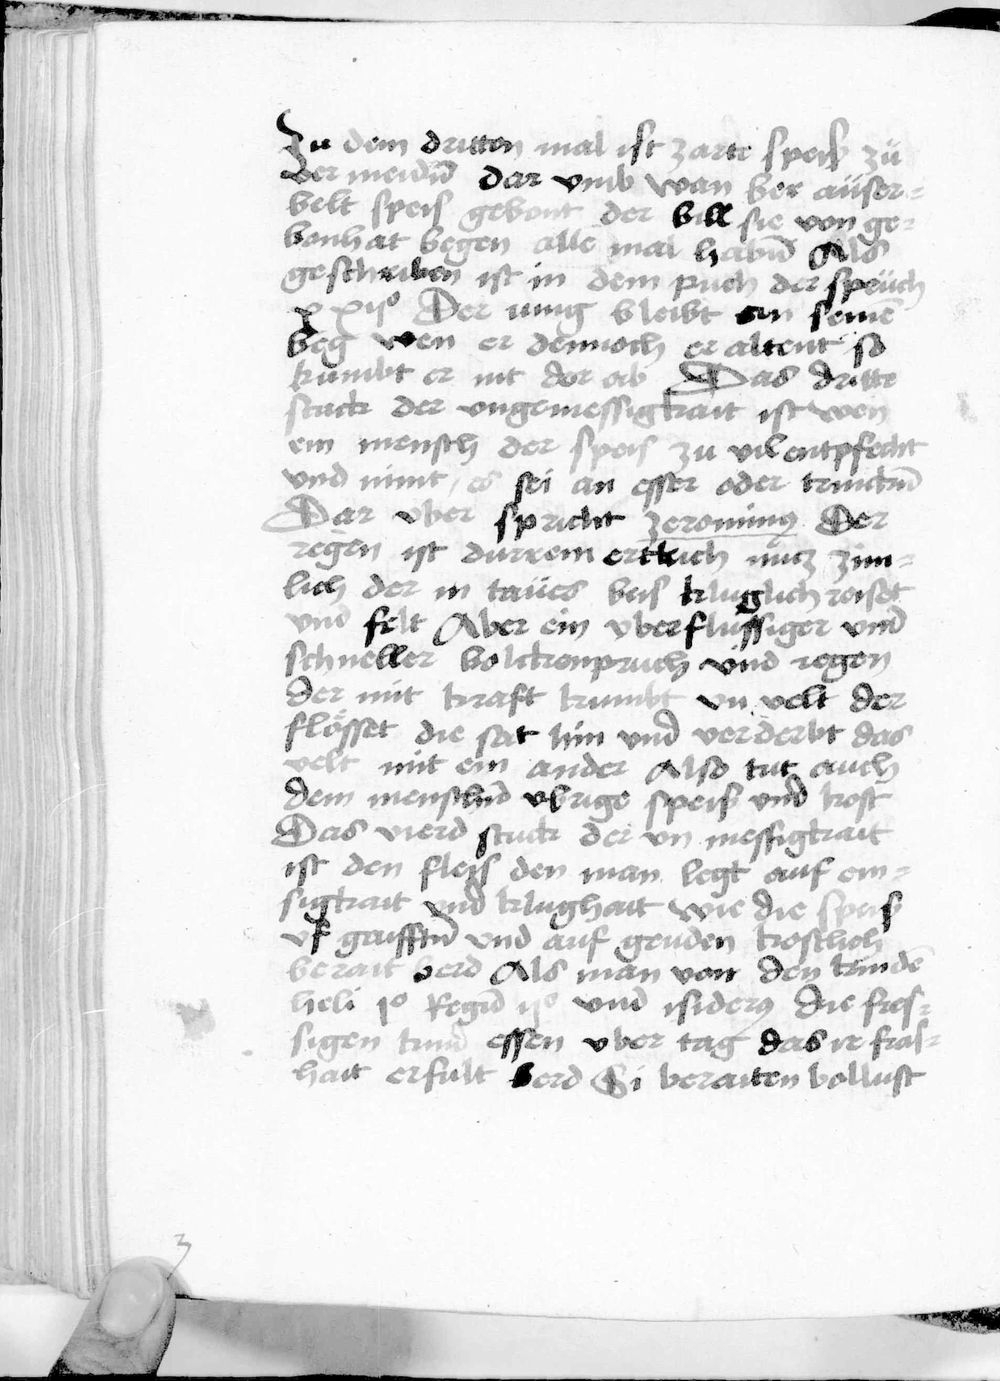 Zu dem dritten mal ist zarte speiß zů
vermeidn̄ dar vmb wan ber aüser-
belt speis gebont der bill sie von ge-
bonhat begen alle mal habn̄ Als
geschriben ist in dem puch der sprüch
xxijº Der iung bleibt an seinē
beg wen er dennoch er altent so
kumbt er nit dor ab Das dritte
stuck der vngemessigkait ist wen
ein mensch der speis zu vil entpfecht
vnd nimt es sei an esser oder trinckn̄
Dar vber spricht Jeronimꝰ Der
regen ist durrem ertrich nucz zim-
lich der in taües beis kluglich reiset
vnd felt Aber ein vberflussiger vnd
schneller bolckenpruch vnd regen
der mit kraft kumbt vn̄ velt der
flösset die sat hin vnd verderbt das
velt mit ein ander Also tut auch
dem menschn̄ vbrige speiß vnd kost
Das vierd stuck der vn messigkait
ist den fleis den man legt auf em-
sigkait vnd klughait wie die speiß
vf gauffn̄ vnd auf geuden kostlich
berait berd Als man von den kindē
heli jº Regū ijº vnd isiderꝰ die fres-
sigen kund essen vber tag das ir fras-
hait erfult berd Si beraiten bollust
3